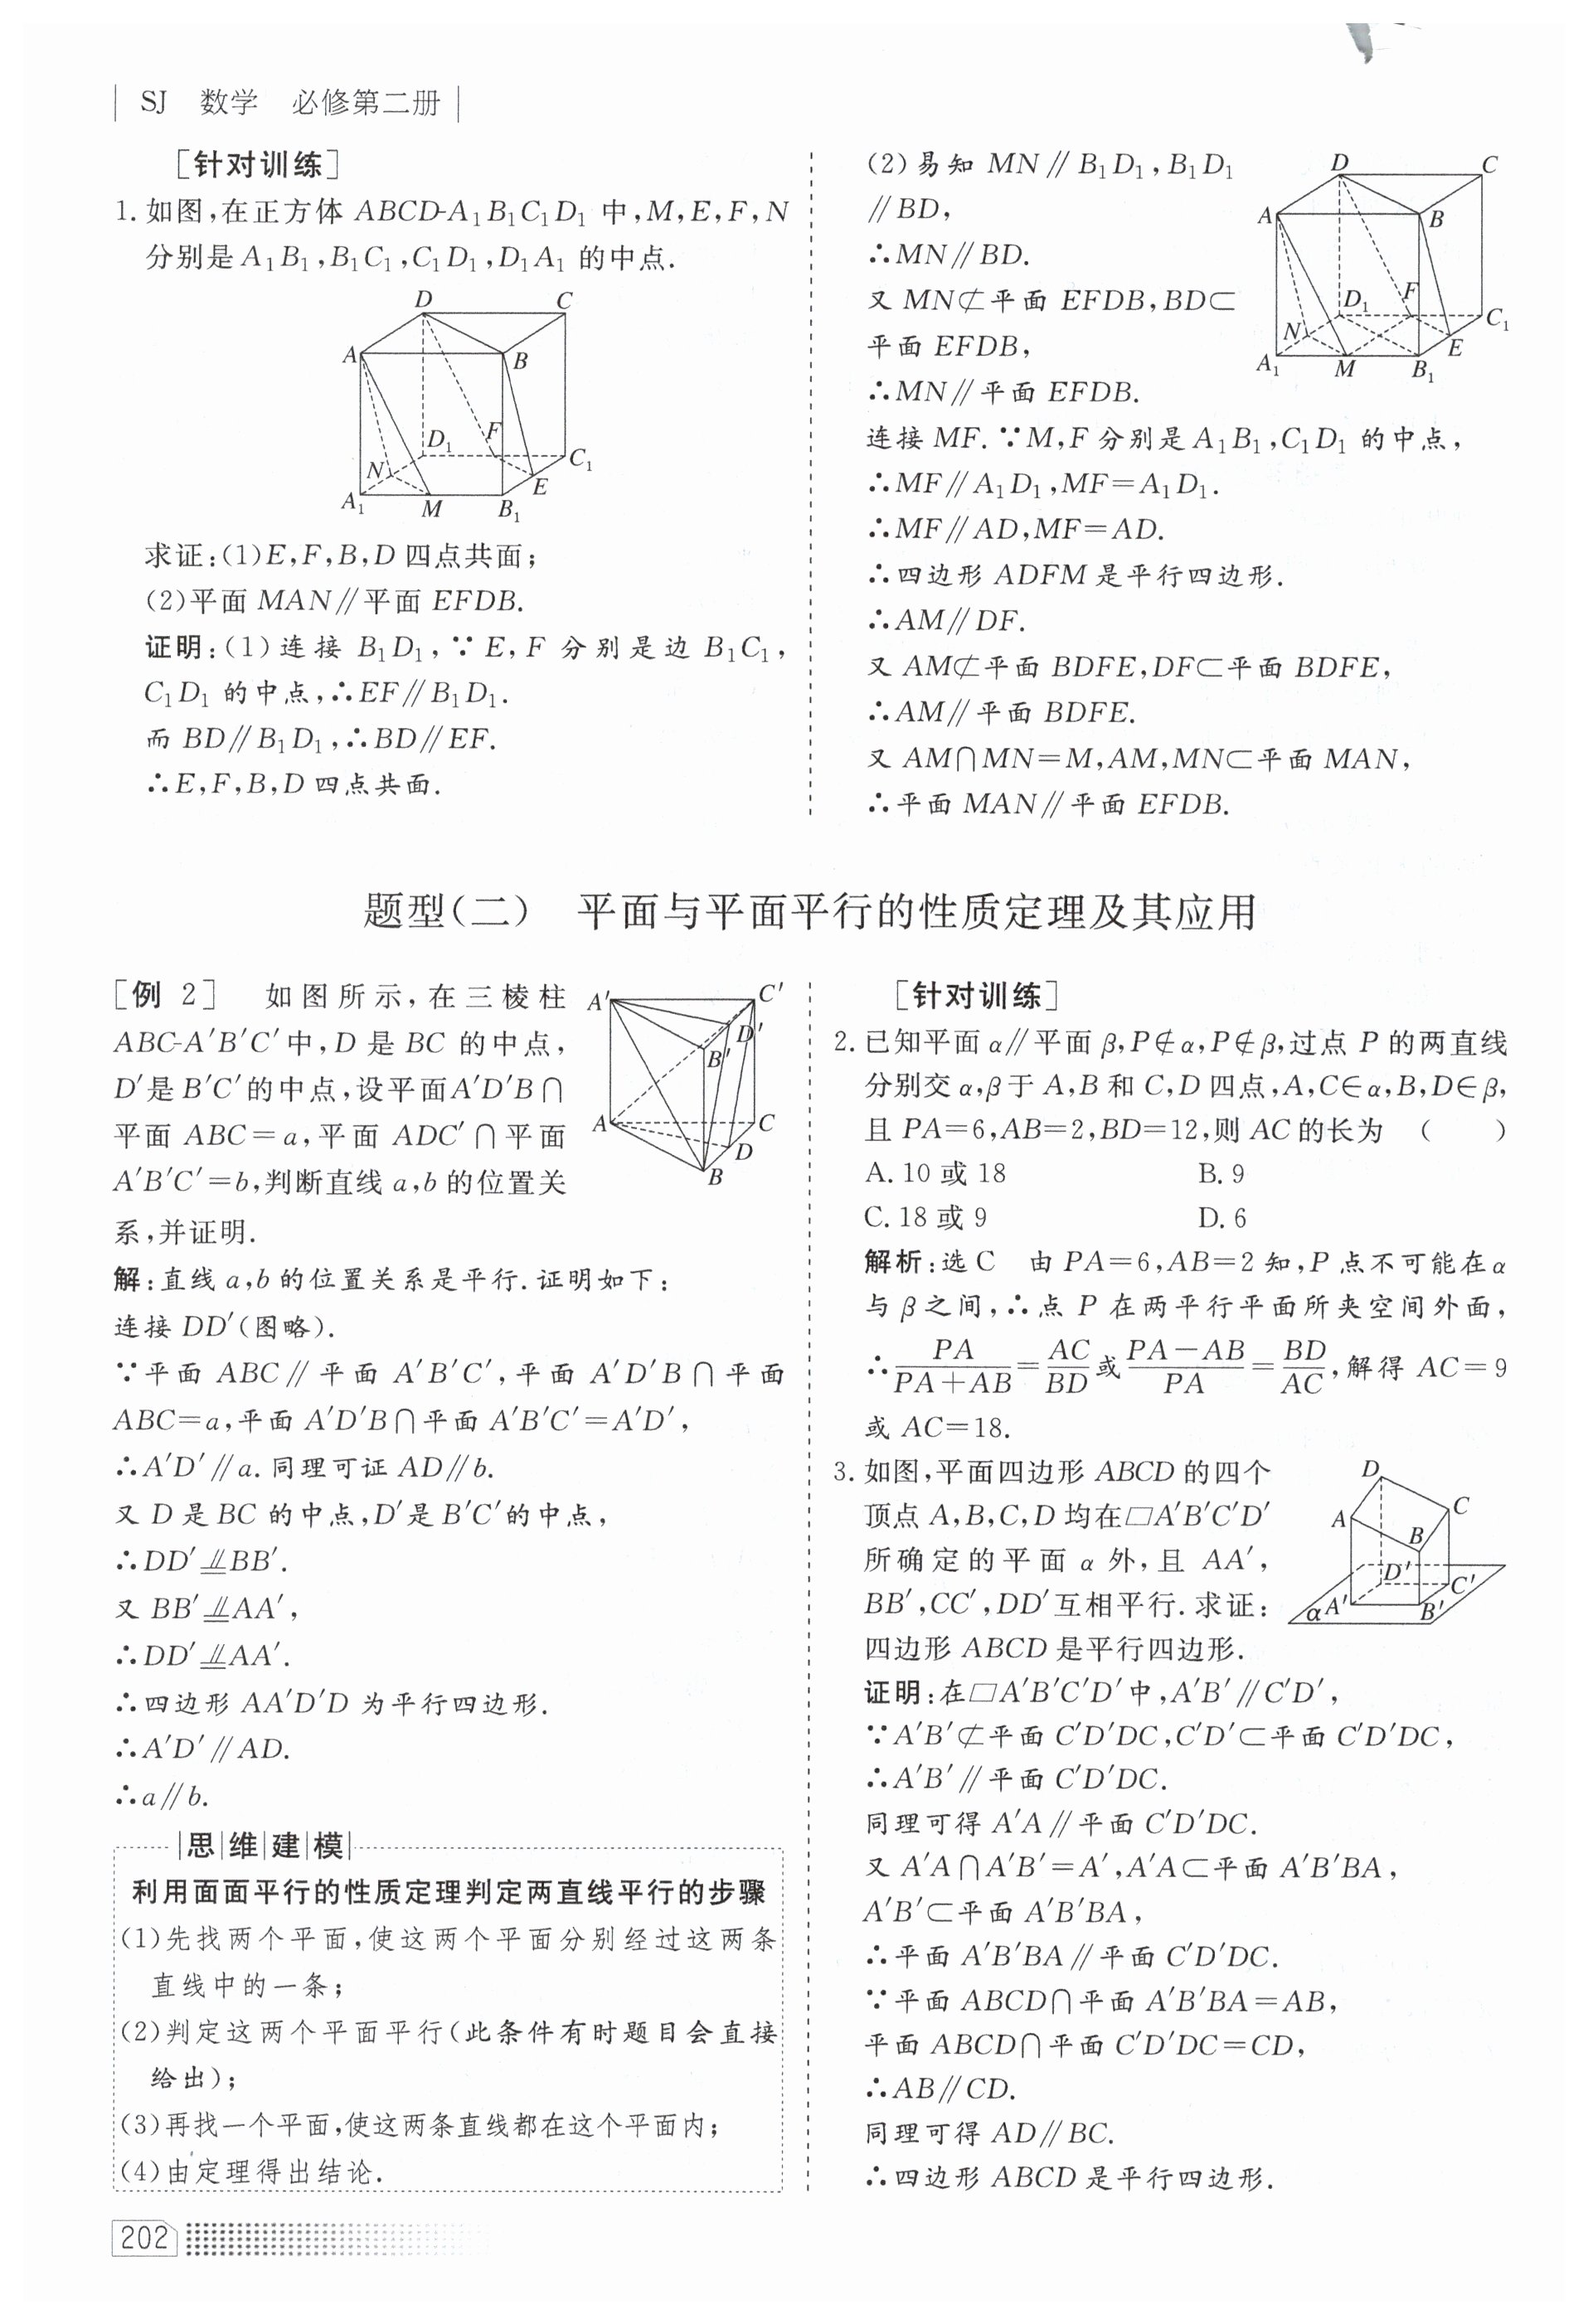 SJ 数学 必修第二册
[针对训练]
1. 如图,在正方体 ABCD-A₁B₁C₁D₁ 中,M,E,F,N
分别是 A₁B₁,B₁C₁,C₁D₁,D₁A₁ 的中点.
D C
A B
D₁ F C₁
N E
A₁ M B₁
求证:(1)E,F,B,D 四点共面;
(2)平面 MAN∥平面 EFDB.
证明:(1)连接 B₁D₁,∵E,F 分别是边 B₁C₁,
C₁D₁ 的中点,∴EF∥B₁D₁.
而 BD∥B₁D₁,∴BD∥EF.
∴E,F,B,D 四点共面.
(2)易知 MN∥B₁D₁,B₁D₁
∥BD,
∴MN∥BD.
又 MN⊄平面 EFDB,BD⊂
平面 EFDB,
∴MN∥平面 EFDB.
D C
A B
D₁ F C₁
N E
A₁ M B₁
连接 MF.∵M,F 分别是 A₁B₁,C₁D₁ 的中点,
∴MF∥A₁D₁,MF=A₁D₁.
∴MF∥AD,MF=AD.
∴四边形 ADFM 是平行四边形.
∴AM∥DF.
又 AM⊄平面 BDFE,DF⊂平面 BDFE,
∴AM∥平面 BDFE.
又 AM∩MN=M,AM,MN⊂平面 MAN,
∴平面 MAN∥平面 EFDB.
题型(二) 平面与平面平行的性质定理及其应用
[例 2] 如图所示,在三棱柱
ABC-A′B′C′中,D 是 BC 的中点,
D′是 B′C′的中点,设平面A′D′B∩
平面 ABC=a,平面 ADC′∩平面
A′B′C′=b,判断直线 a,b 的位置关
系,并证明.
A′ C′
D′
B′
A C
D
B
解:直线 a,b 的位置关系是平行.证明如下:
连接 DD′(图略).
∵平面 ABC∥平面 A′B′C′,平面 A′D′B∩平面
ABC=a,平面 A′D′B∩平面 A′B′C′=A′D′,
∴A′D′∥a.同理可证 AD∥b.
又 D 是 BC 的中点,D′是 B′C′的中点,
∴DD′⥫BB′.
又 BB′⥫AA′,
∴DD′⥫AA′.
∴四边形 AA′D′D 为平行四边形.
∴A′D′∥AD.
∴a∥b.
思维建模
利用面面平行的性质定理判定两直线平行的步骤
(1)先找两个平面,使这两个平面分别经过这两条
直线中的一条;
(2)判定这两个平面平行(此条件有时题目会直接
给出);
(3)再找一个平面,使这两条直线都在这个平面内;
(4)由定理得出结论.
[针对训练]
2. 已知平面 α∥平面 β,P∉α,P∉β,过点 P 的两直线
分别交 α,β于 A,B 和 C,D 四点,A,C∈α,B,D∈β,
且 PA=6,AB=2,BD=12,则 AC 的长为 ( )
A. 10 或 18 B. 9
C. 18 或 9 D. 6
解析:选 C 由 PA=6,AB=2 知,P 点不可能在 α
与 β 之间,∴点 P 在两平行平面所夹空间外面,
∴PA/(PA+AB)=AC/BD或(PA-AB)/PA=BD/AC,解得 AC=9
或 AC=18.
3. 如图,平面四边形 ABCD 的四个
顶点 A,B,C,D 均在▱A′B′C′D′
所确定的平面 α 外,且 AA′,
BB′,CC′,DD′互相平行.求证:
四边形 ABCD 是平行四边形.
D
A C
B
D′ C′
α A′ B′
证明:在▱A′B′C′D′中,A′B′∥C′D′,
∵A′B′⊄平面 C′D′DC,C′D′⊂平面 C′D′DC,
∴A′B′∥平面 C′D′DC.
同理可得 A′A∥平面 C′D′DC.
又 A′A∩A′B′=A′,A′A⊂平面 A′B′BA,
A′B′⊂平面 A′B′BA,
∴平面 A′B′BA∥平面 C′D′DC.
∵平面 ABCD∩平面 A′B′BA=AB,
平面 ABCD∩平面 C′D′DC=CD,
∴AB∥CD.
同理可得 AD∥BC.
∴四边形 ABCD 是平行四边形.
202